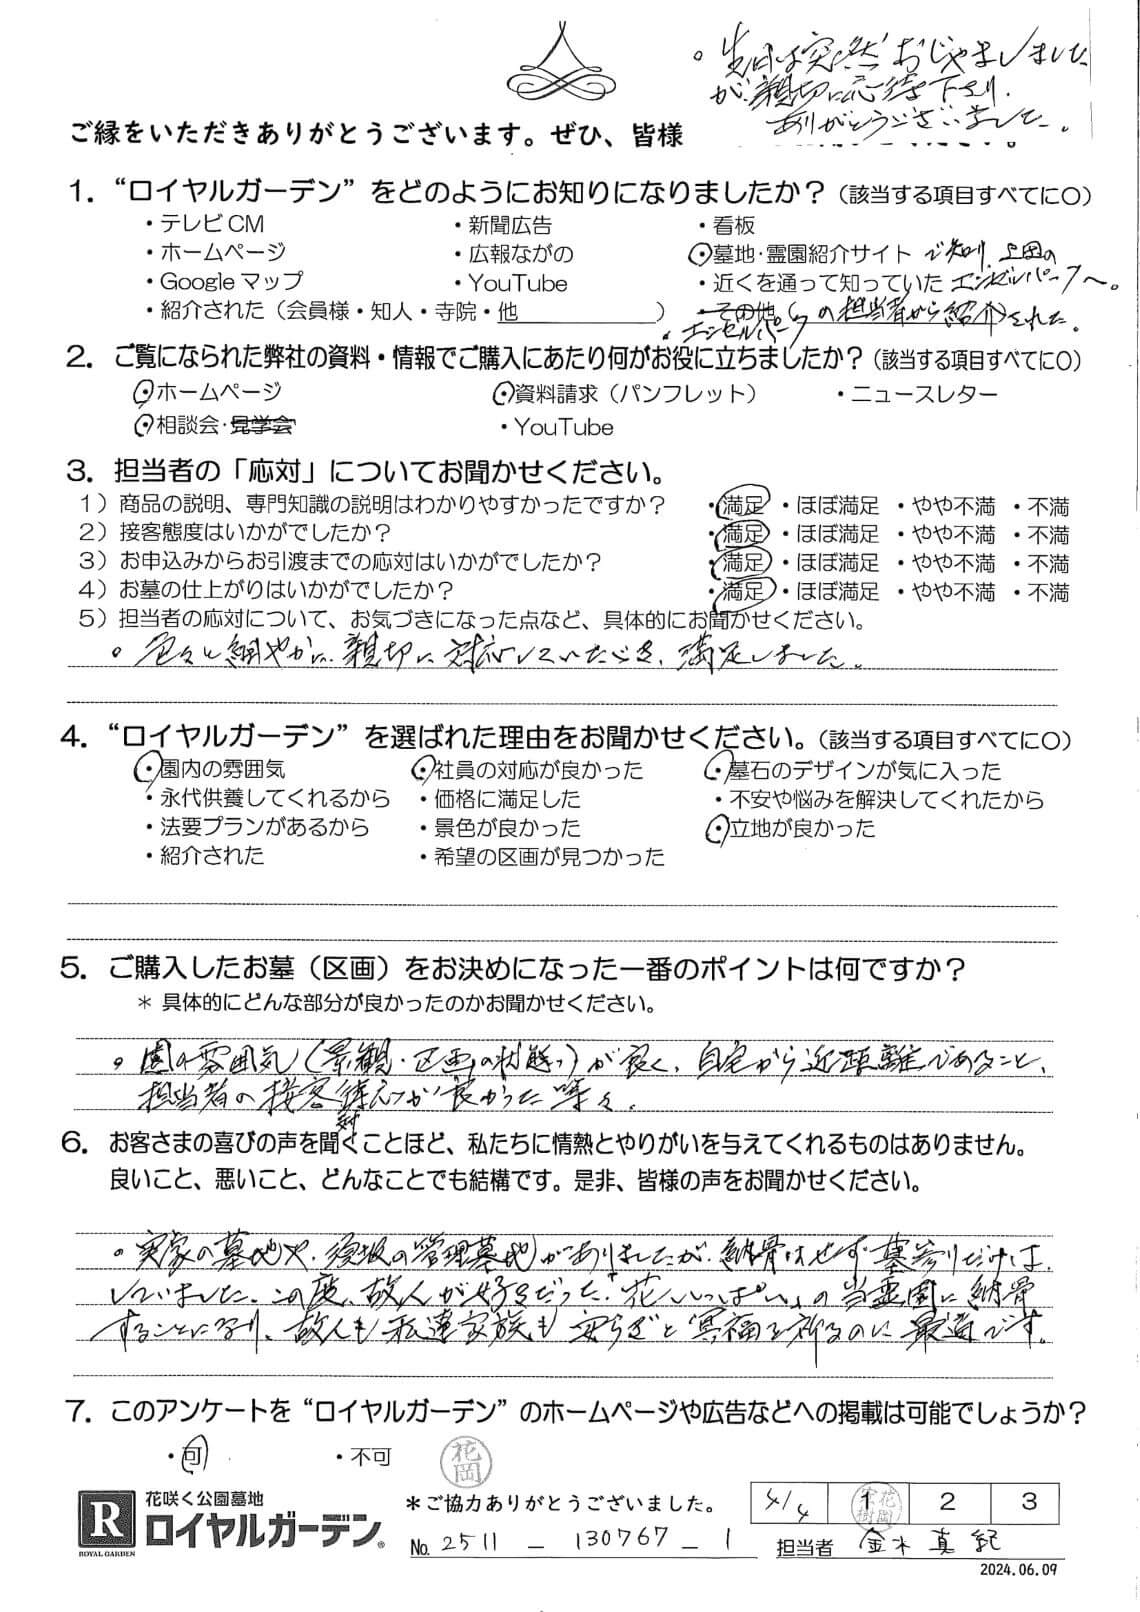 。先日は突然おじゃましました
が、親切に応待下さり、
ありがとうございました。
ご縁をいただきありがとうございます。ぜひ、皆様
1．“ロイヤルガーデン”をどのようにお知りになりましたか？（該当する項目すべてに〇）
・テレビCM ・新聞広告 ・看板
・ホームページ ・広報ながの ・墓地・霊園紹介サイト で知り、上田の
・Googleマップ ・YouTube ・近くを通って知っていた エンゼルパークへ。
・紹介された（会員様・知人・寺院・他 ） ・その他（ の担当者から紹介）された。
・エンゼルパーク
2．ご覧になられた弊社の資料・情報でご購入にあたり何がお役に立ちましたか？（該当する項目すべてに〇）
・ホームページ ・資料請求（パンフレット） ・ニュースレター
・相談会・見学会 ・YouTube
3．担当者の「応対」についてお聞かせください。
1）商品の説明、専門知識の説明はわかりやすかったですか？ ・満足 ・ほぼ満足 ・やや不満 ・不満
2）接客態度はいかがでしたか？ ・満足 ・ほぼ満足 ・やや不満 ・不満
3）お申込みからお引渡までの応対はいかがでしたか？ ・満足 ・ほぼ満足 ・やや不満 ・不満
4）お墓の仕上がりはいかがでしたか？ ・満足 ・ほぼ満足 ・やや不満 ・不満
5）担当者の応対について、お気づきになった点など、具体的にお聞かせください。
。色々と細やかに、親切に対応していただき、満足しました。
4．“ロイヤルガーデン”を選ばれた理由をお聞かせください。（該当する項目すべてに〇）
・園内の雰囲気 ・社員の対応が良かった ・墓石のデザインが気に入った
・永代供養してくれるから ・価格に満足した ・不安や悩みを解決してくれたから
・法要プランがあるから ・景色が良かった ・立地が良かった
・紹介された ・希望の区画が見つかった
5．ご購入したお墓（区画）をお決めになった一番のポイントは何ですか？
＊具体的にどんな部分が良かったのかお聞かせください。
。園の雰囲気（景観・区画の状態）が良く、自宅から近距離であること、
担当者の接客対応が良かった等々。
6．お客さまの喜びの声を聞くことほど、私たちに情熱とやりがいを与えてくれるものはありません。
良いこと、悪いこと、どんなことでも結構です。是非、皆様の声をお聞かせください。
。実家の墓地や、須坂の管理墓地がありましたが、納骨はせず墓参りだけは、
していました。この度、故人が好きだった「花いっぱい」の当霊園に納骨
することになり、故人も私達家族も安らぎと冥福を祈るのに最適です。
7．このアンケートを“ロイヤルガーデン”のホームページや広告などへの掲載は可能でしょうか？
・可 ・不可 花岡
R ROYAL GARDEN
花咲く公園墓地
ロイヤルガーデン®
＊ご協力ありがとうございました。
4/4 1 2 3
No. 2511 － 130767 － 1 担当者 金木 真紀
2024.06.09